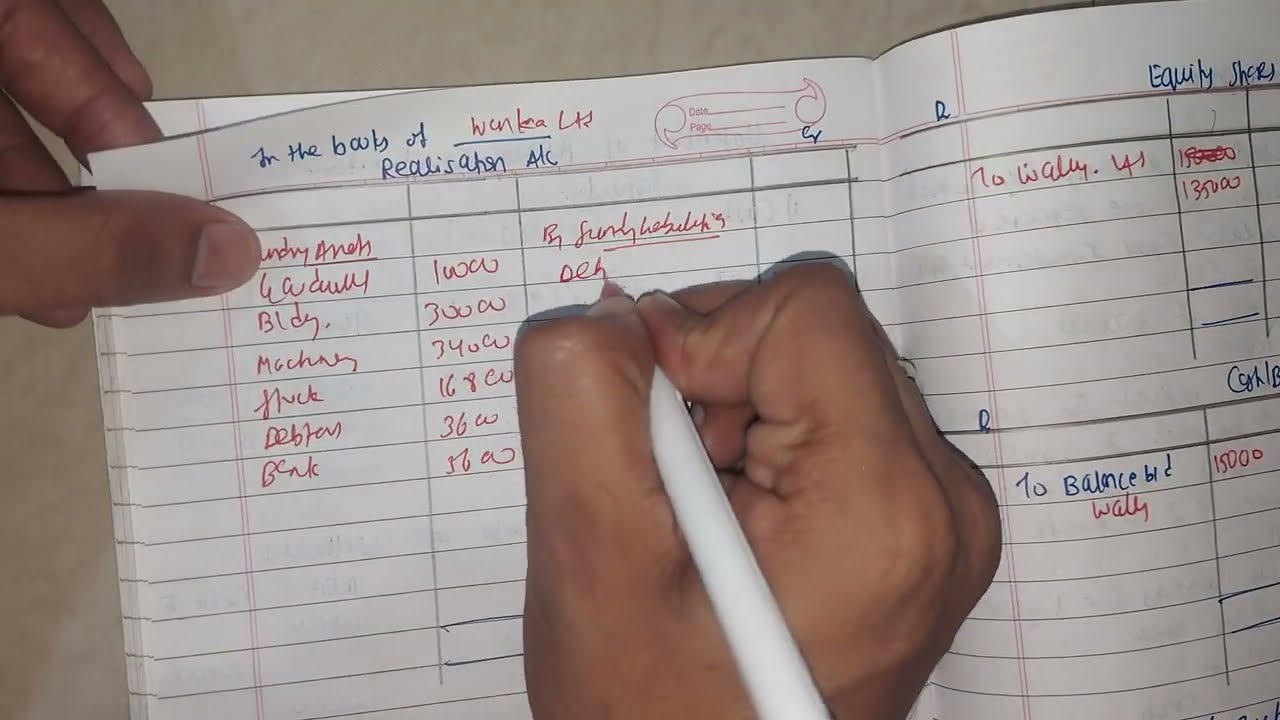 In the books of Wenkea Ltd
Realisation A/c
Date
Page
Cr
Goodwill 10000
Bldg. 30000
Machinery 34000
Stock 16800
Debtors 3600
Bank 3600
By Sundry Liabilities
Deb
Equity Shares
Dr
To Wally. Ltd
135000
Cash/B
Dr
To Balance b/d 15000
Wally